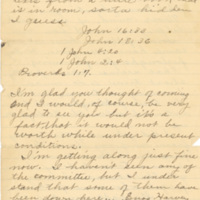 is in room, sorta hid in
I guess.
John 16:33
John 18:36
1 John 4:20
1 John 2:14
Proverbs 1:7.
I'm glad you thought of coming
and I would, of course, be very
glad to see you but it's a
fact that it would not be
worth while under present
conditions.
I'm getting along just fine
now. I haven't seen any of
the committee, but I under
stand that some of them have
been down